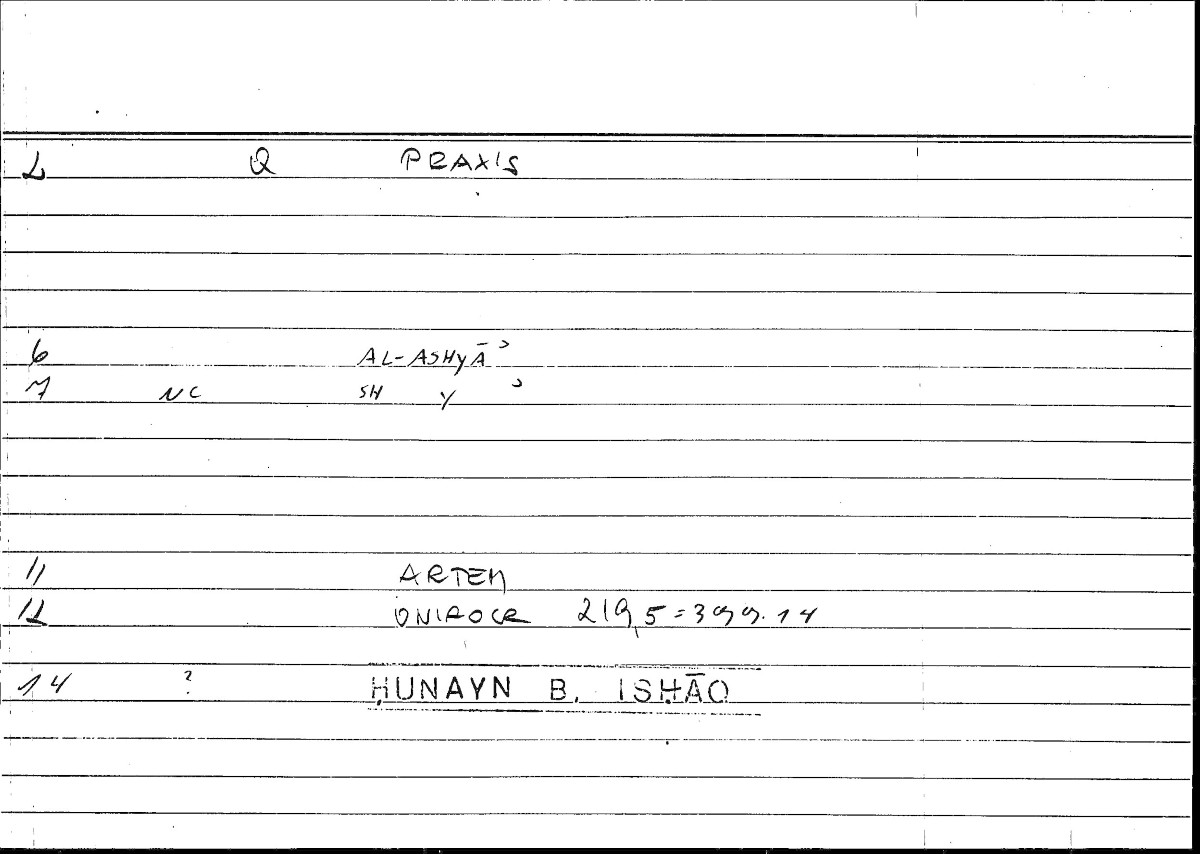 L Q PRAXIS
6 AL-ASHyĀʾ
7 NC SH Y ʾ
11 ARTEM
12 ONIROCR 219,5=399.14
14 ? ḤUNAYN B. ISḤĀQ